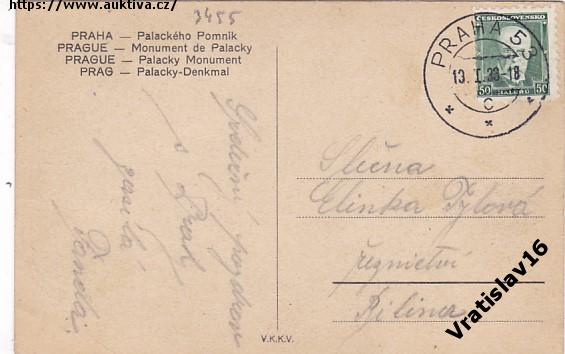 https://www.auktiva.cz/
3455
PRAHA — Palackého Pomník
PRAGUE — Monument de Palacky
PRAGUE — Palacky Monument
PRAG — Palacky-Denkmal
ČESKOSLOVENSKO
50 HALÉŘŮ 50
PRAHA 53
13. I. 38-18
C
Srdečný pozdrav
z Prahy
zasílá
Slečna
Elinka Pýlová
řeznictví
Bílina
V.K.K.V.
Vratislav16